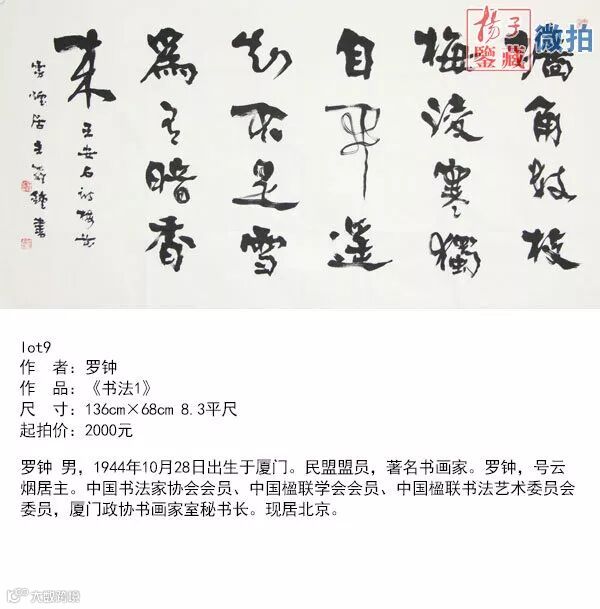 墙角数枝
梅凌寒独
自开遥
知不是雪
为有暗香
来 王安石诗梅花
云烟居主罗钟书
杨子
鉴藏
微拍
lot9
作 者：罗钟
作 品：《书法1》
尺 寸：136cm×68cm 8.3平尺
起拍价：2000元
罗钟 男，1944年10月28日出生于厦门。民盟盟员，著名书画家。罗钟，号云
烟居主。中国书法家协会会员、中国楹联学会会员、中国楹联书法艺术委员会
委员，厦门政协书画家室秘书长。现居北京。